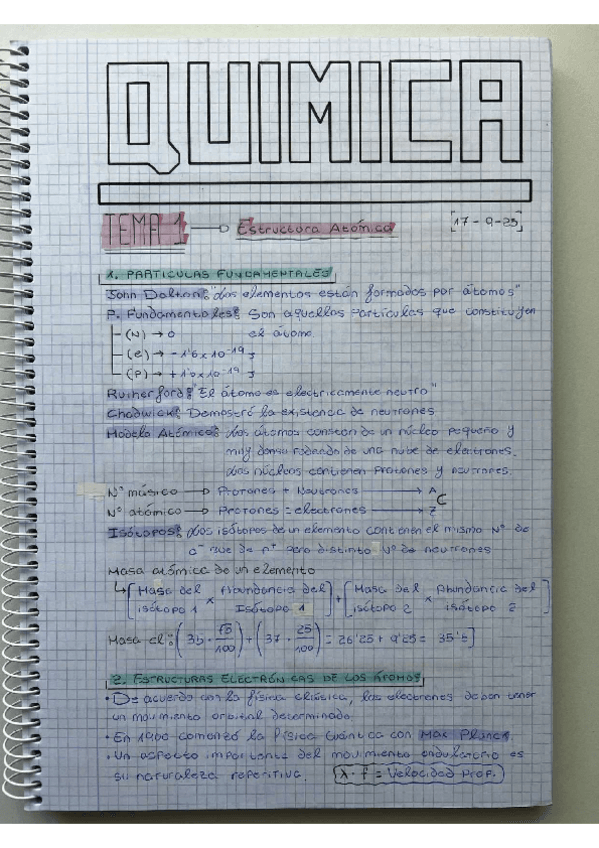 QUIMICA
TEMA 1 → Estructura Atómica [17-9-25]
1. PARTICULAS FUNDAMENTALES
John Dalton: "Los elementos están formados por átomos"
P. Fundamentales: Son aquellas partículas que constituyen
(N) → 0 el átomo.
(e) → -1'6 x 10⁻¹⁹
(P) → +1'6 x 10⁻¹⁹
Rutherford: "El átomo es electricamente neutro"
Chadwick: Demostró la existencia de neutrones
Modelo Atómico: Los átomos constan de un núcleo pequeño y
muy denso rodeado de una nube de electrones.
Los núcleos contienen protones y neutrones.
Nº másico → Protones + Neutrones → A
C
Nº atómico → Protones = electrones → Z
Isótopos: Los isótopos de un elemento contienen el mismo Nº de
e⁻ que de p⁺ pero distinto Nº de neutrones
Masa atómica de un elemento
↳ [Masa del isótopo 1 x Abundancia del Isótopo 1] + [Masa del isótopo 2 x Abundancia del isótopo 2]
Masa cl: (35 · 75/100) + (37 · 25/100) = 26'25 + 9'25 = 35'5]
2. ESTRUCTURAS ELECTRÓNICAS DE LOS ÁTOMOS
• De acuerdo con la física clásica, los electrones deben tener
un movimiento orbital determinado.
• En 1900 comenzó la Física Cuántica con Max Planck
• Un aspecto importante del movimiento ondulatorio es
su naturaleza repetitiva. λ · f = Velocidad Prop.